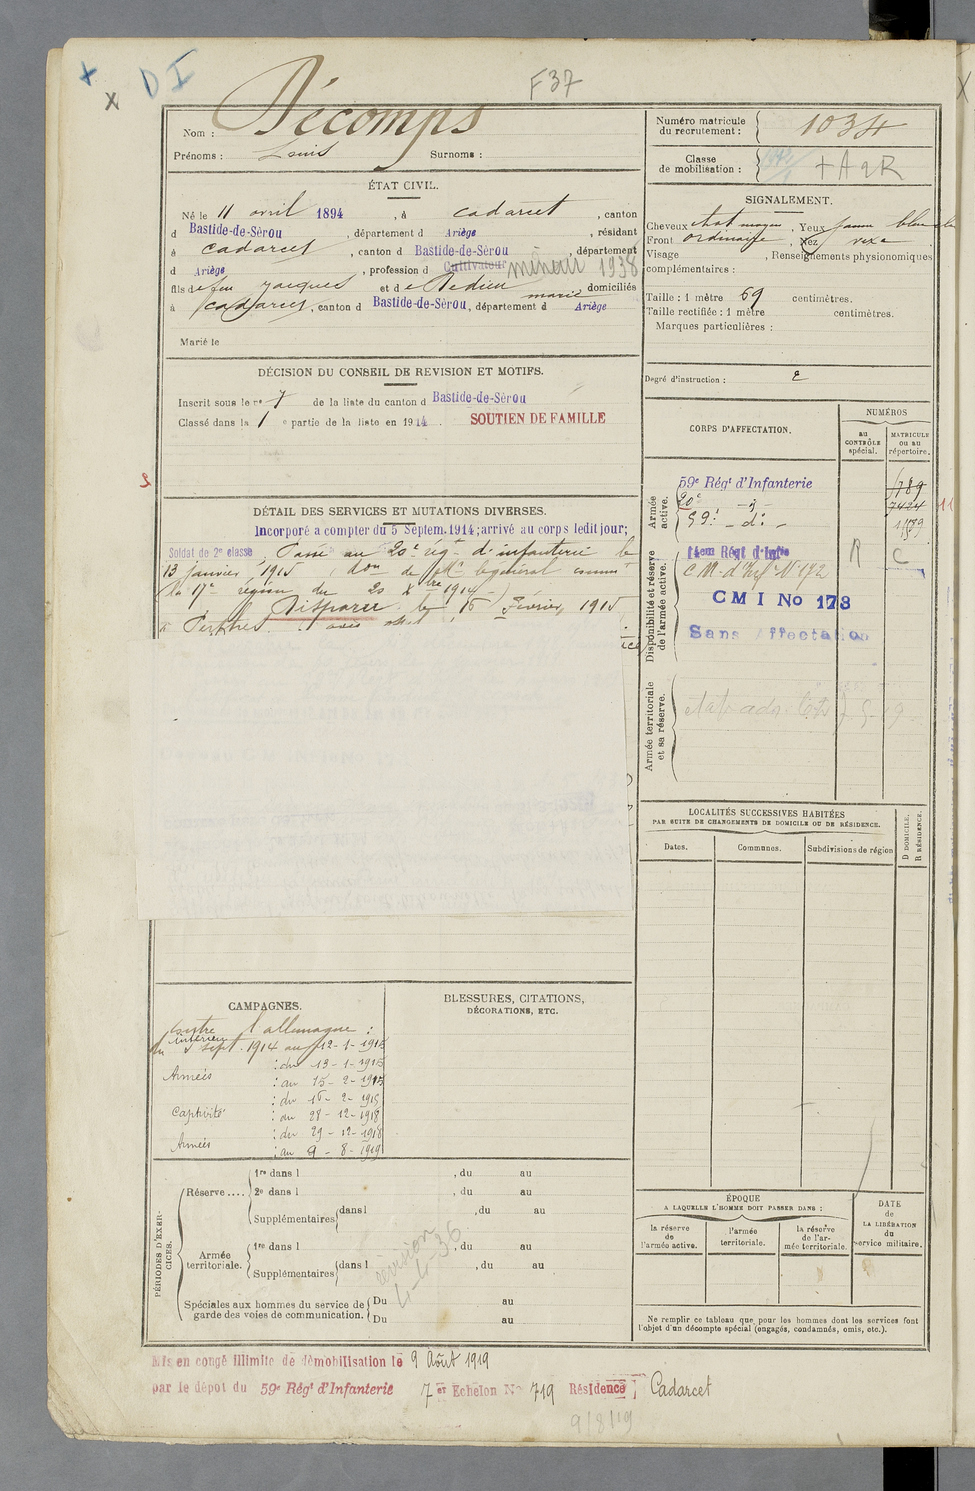 + D I
X
F37
Nom : Décomps
Prénoms : Louis Surnoms :
Numéro matricule du recrutement : 1034
Classe de mobilisation : + A 2 R
ÉTAT CIVIL.
Né le 11 avril 1894, à Cadarcet, canton
d Bastide-de-Sérou, département d Ariège, résidant
à Cadarcet, canton d Bastide-de-Sérou, département
d Ariège, profession d Cultivateur mineur 1938
fils de feu Jacques et de Dedieu marie domiciliés
à Cadarcet, canton d Bastide-de-Sérou, département d Ariège
Marié le
SIGNALEMENT.
Cheveux chat moyen, Yeux jaune bleu
Front ordinaire, Nez vexe
Visage , Renseignements physionomiques
complémentaires :
Taille : 1 mètre 69 centimètres.
Taille rectifiée : 1 mètre centimètres.
Marques particulières :
Degré d'instruction : 2
DÉCISION DU CONSEIL DE REVISION ET MOTIFS.
Inscrit sous le no 7 de la liste du canton d Bastide-de-Sérou
Classé dans la 1 e partie de la liste en 1914. SOUTIEN DE FAMILLE
DÉTAIL DES SERVICES ET MUTATIONS DIVERSES.
Incorporé à compter du 5 Septem. 1914; arrivé au corps ledit jour;
Soldat de 2e classe Passé au 20e régt d'infanterie le
13 janvier 1915 don de Mr le général commt
la 17e région du 20 Xbre 1914
Disparu le 16 février 1915
à Perthes. avis
CORPS D'AFFECTATION.
NUMÉROS
au CONTRÔLE spécial.
MATRICULE ou au répertoire.
Armée active.
59e Régt d'Infanterie 1789
20e -d- 7424
59e -d-
11
Disponibilité et réserve de l'armée active.
14eme Régt d'Infie R C
CM d'Inf No 172
CMI No 173
Sans Affectation
Armée territoriale et sa réserve.
LOCALITÉS SUCCESSIVES HABITÉES
PAR SUITE DE CHANGEMENTS DE DOMICILE OU DE RÉSIDENCE.
Dates. Communes. Subdivisions de région
D DOMICILE. R RÉSIDENCE.
CAMPAGNES.
Contre l'allemagne :
intérieur
du 5 sept. 1914 au 12-1-1915
Armées : du 13-1-1915
: au 15-2-1915
Captivité : du 16-2-1915
: au 28-12-1918
Armées : du 29-12-1918
: au 9-8-1919
BLESSURES, CITATIONS,
DÉCORATIONS, ETC.
PÉRIODES D'EXERCICES.
Réserve .... 1re dans l , du au
2e dans l , du au
Supplémentaires dans l , du au
Armée territoriale. 1re dans l , du au
Supplémentaires dans l , du au
Spéciales aux hommes du service de garde des voies de communication. Du au
Du au
révision
4-4-36
ÉPOQUE
A LAQUELLE L'HOMME DOIT PASSER DANS :
la réserve de l'armée active.
l'armée territoriale.
la réserve de l'armée territoriale.
DATE de LA LIBÉRATION du service militaire.
Ne remplir ce tableau que pour les hommes dont les services font
l'objet d'un décompte spécial (engagés, condamnés, omis, etc.).
Mis en congé illimité de démobilisation le 9 Août 1919
par le dépôt du 59e Régt d'Infanterie 7 er Echelon No 719 Résidence Cadarcet
9/8/19